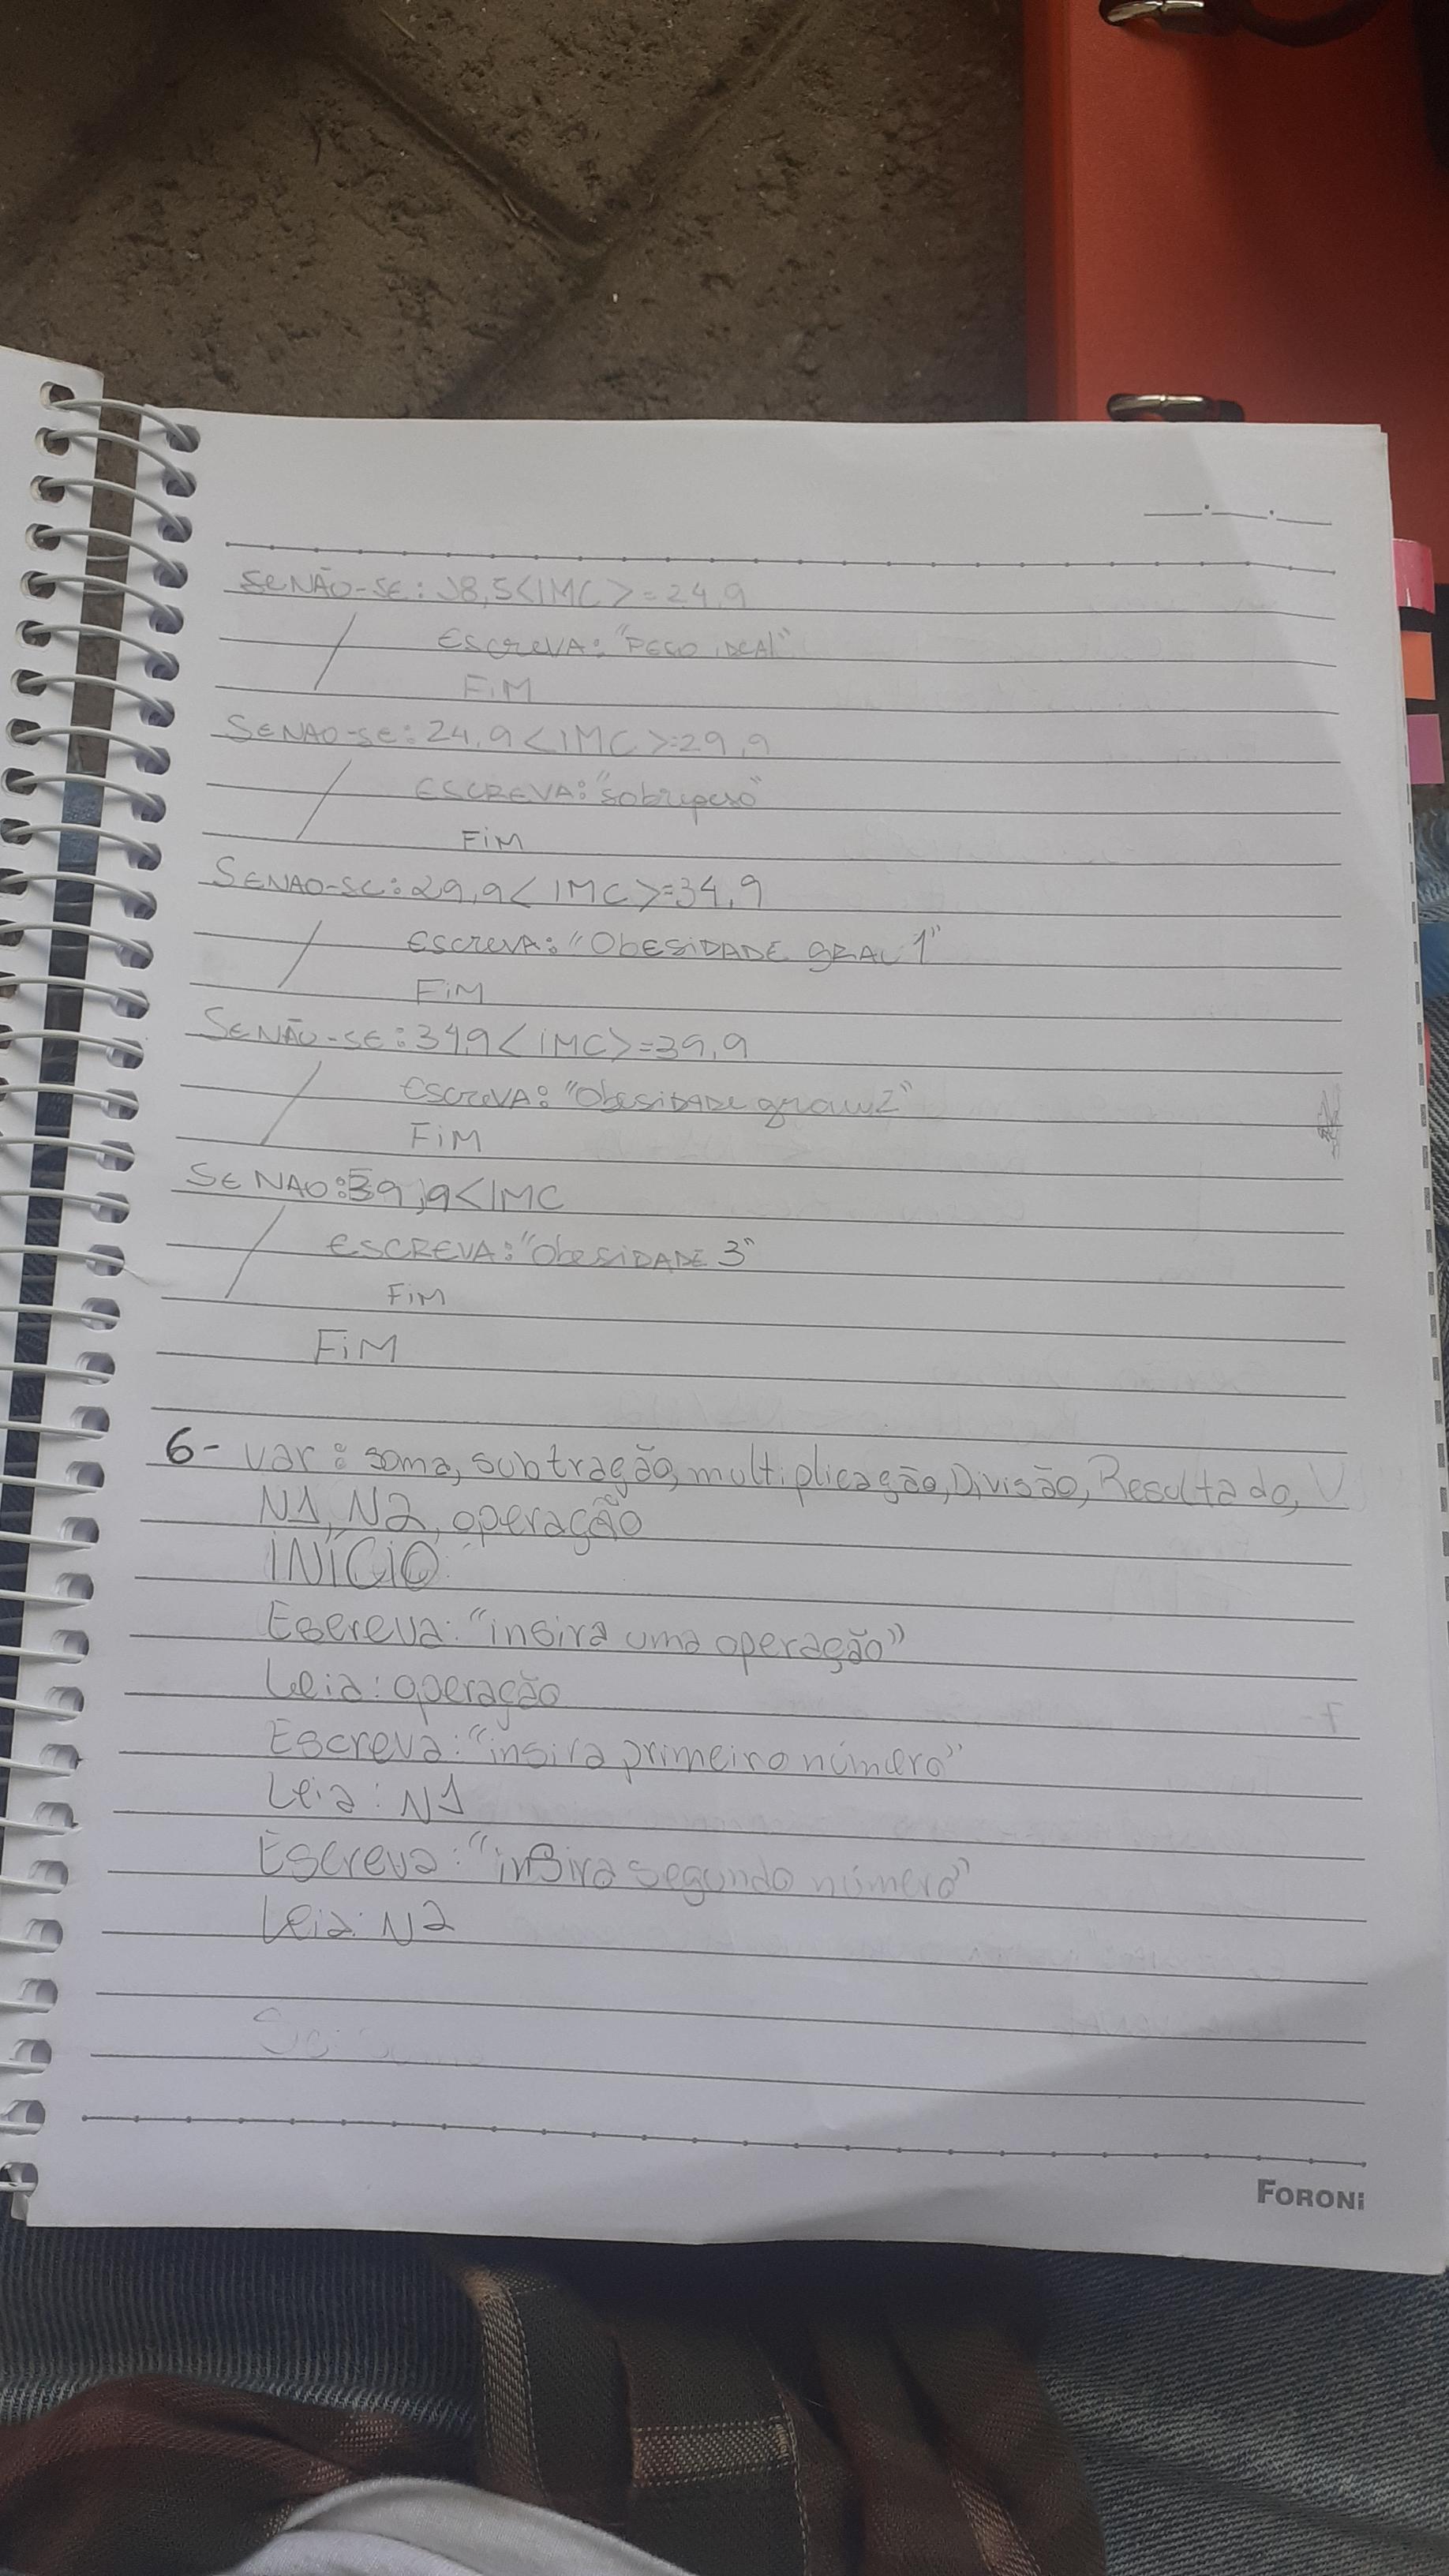 SENÃO-SE: 18,5<IMC>=24,9
ESCREVA: "PESO IDEAL"
FIM
SENAO-SE: 24,9<IMC>=29,9
ESCREVA: "sobrepeso"
FIM
SENAO-SE: 29,9< IMC>=34,9
ESCREVA: "ObESIDADE GRAU 1"
FIM
SENÃO-SE: 34,9<IMC>=39,9
ESCREVA: "ObesiDADE grau 2"
FIM
SENAO: 39,9<IMC
ESCREVA: "ObesiDADE 3"
FIM
FIM
6- var: soma, subtração, multiplicação, Divisão, Resultado,
N1, N2, operação
INÍCIO
Escreva: "insira uma operação"
Leia: operação
Escreva: "insira primeiro número"
Leia: N1
Escreva: "insira segundo número"
Leia: N2
FORONI